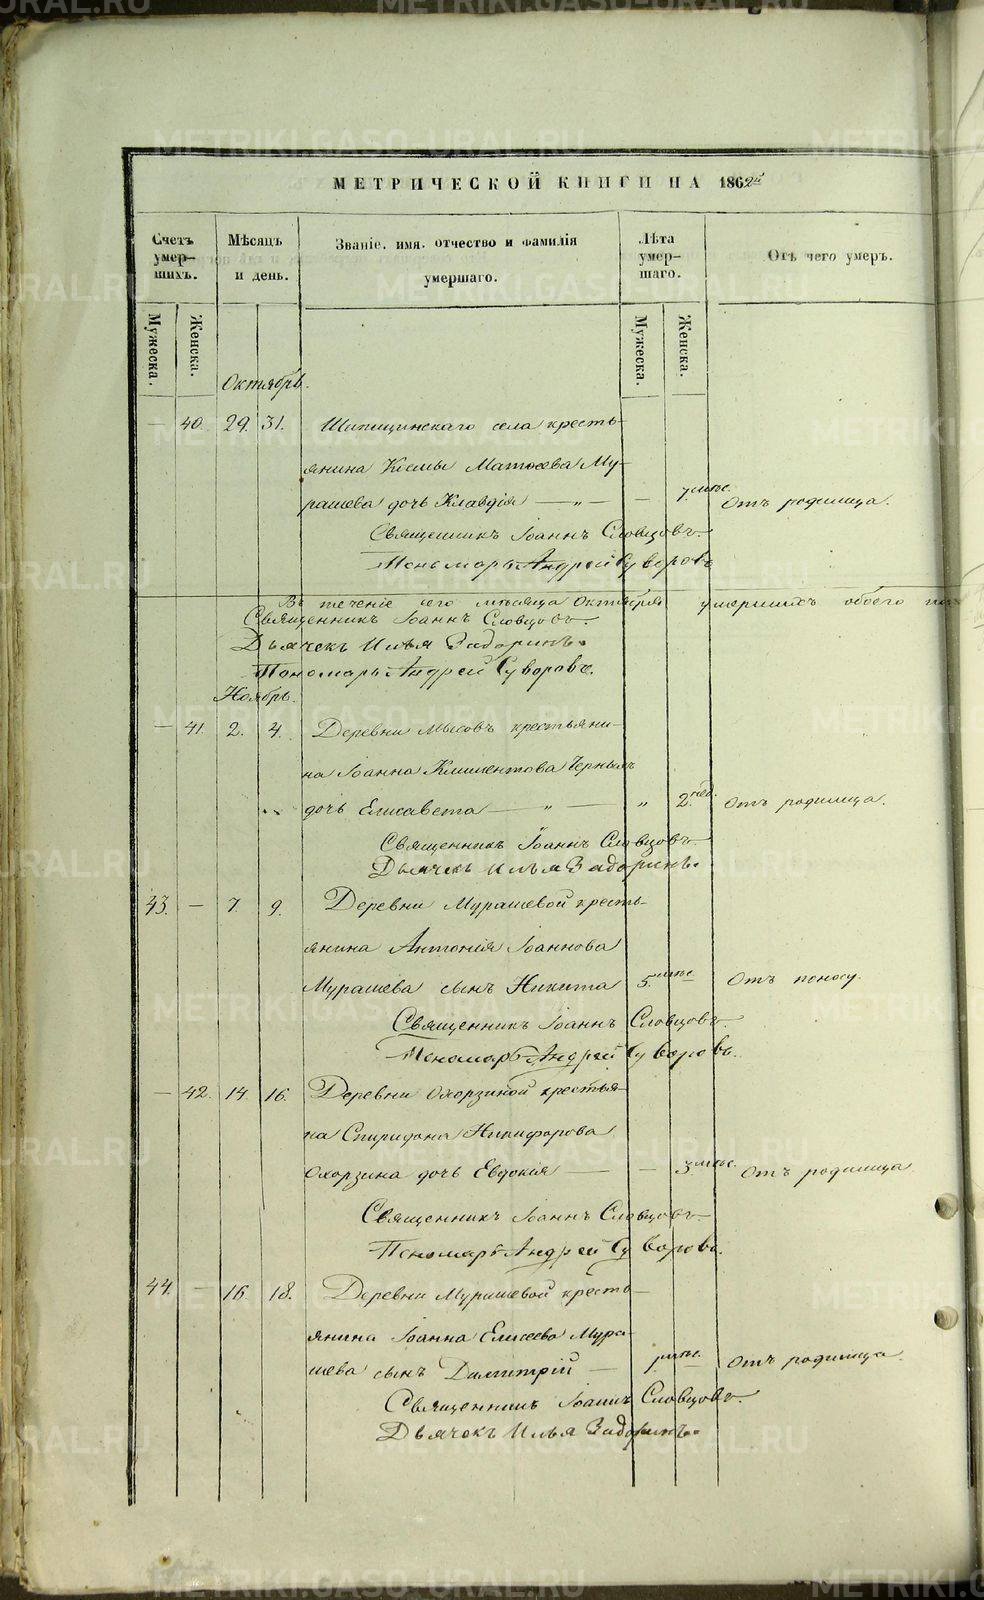 МЕТРИЧЕСКОЙ КНИГИ НА 1862й
Счетъ умер-шихъ. Мѣсяцъ и день. Званіе, имя, отчество и фамилія умершаго. Лѣта умер-шаго. Отъ чего умеръ.
Мужеска. Женска. Мужеска. Женска.
Октябрь.
— 40. 29. 31. Шипицинскаго села кресть-
янина Козмы Матѳеева Му-
рашева дочь Клавдія — „ — — 7 мѣс. Отъ родимца.
Священникъ Іоаннъ Словцовъ.
Пономарь Андрей Суворовъ
Въ теченіе сего мѣсяца Октября умершихъ обоего
Священникъ Іоаннъ Словцовъ.
Дьячекъ Илья Задоринъ.
Пономарь Андрей Суворовъ.
Ноябрь.
— 41. 2. 4. Деревни Мысовъ крестьяни-
на Іоанна Климентова Черныхъ
дочь Елисавета — „ — „ 2. нед. Отъ родимца.
Священникъ Іоаннъ Словцовъ.
Дьячекъ Илья Задоринъ.
43. — 7. 9. Деревни Мурашевой кресть-
янина Антонія Іоаннова
Мурашева сынъ Никита 5. мѣс. — Отъ поносу.
Священникъ Іоаннъ Словцовъ.
Пономарь Андрей Суворовъ.
— 42. 14. 16. Деревни Охорзиной крестья-
на Спиридона Никифорова
Охорзина дочь Евдокія — — 3 мѣс. Отъ родимца
Священникъ Іоаннъ Словцовъ.
Пономарь Андрей Суворовъ.
44. — 16. 18. Деревни Мурашевой кресть-
янина Іоанна Елисеева Мура-
шева сынъ Димитрій — мѣс. — Отъ родимца.
Священникъ Іоаннъ Словцовъ.
Дьячекъ Илья Задоринъ.
METRIKI.GASO-URAL.RU